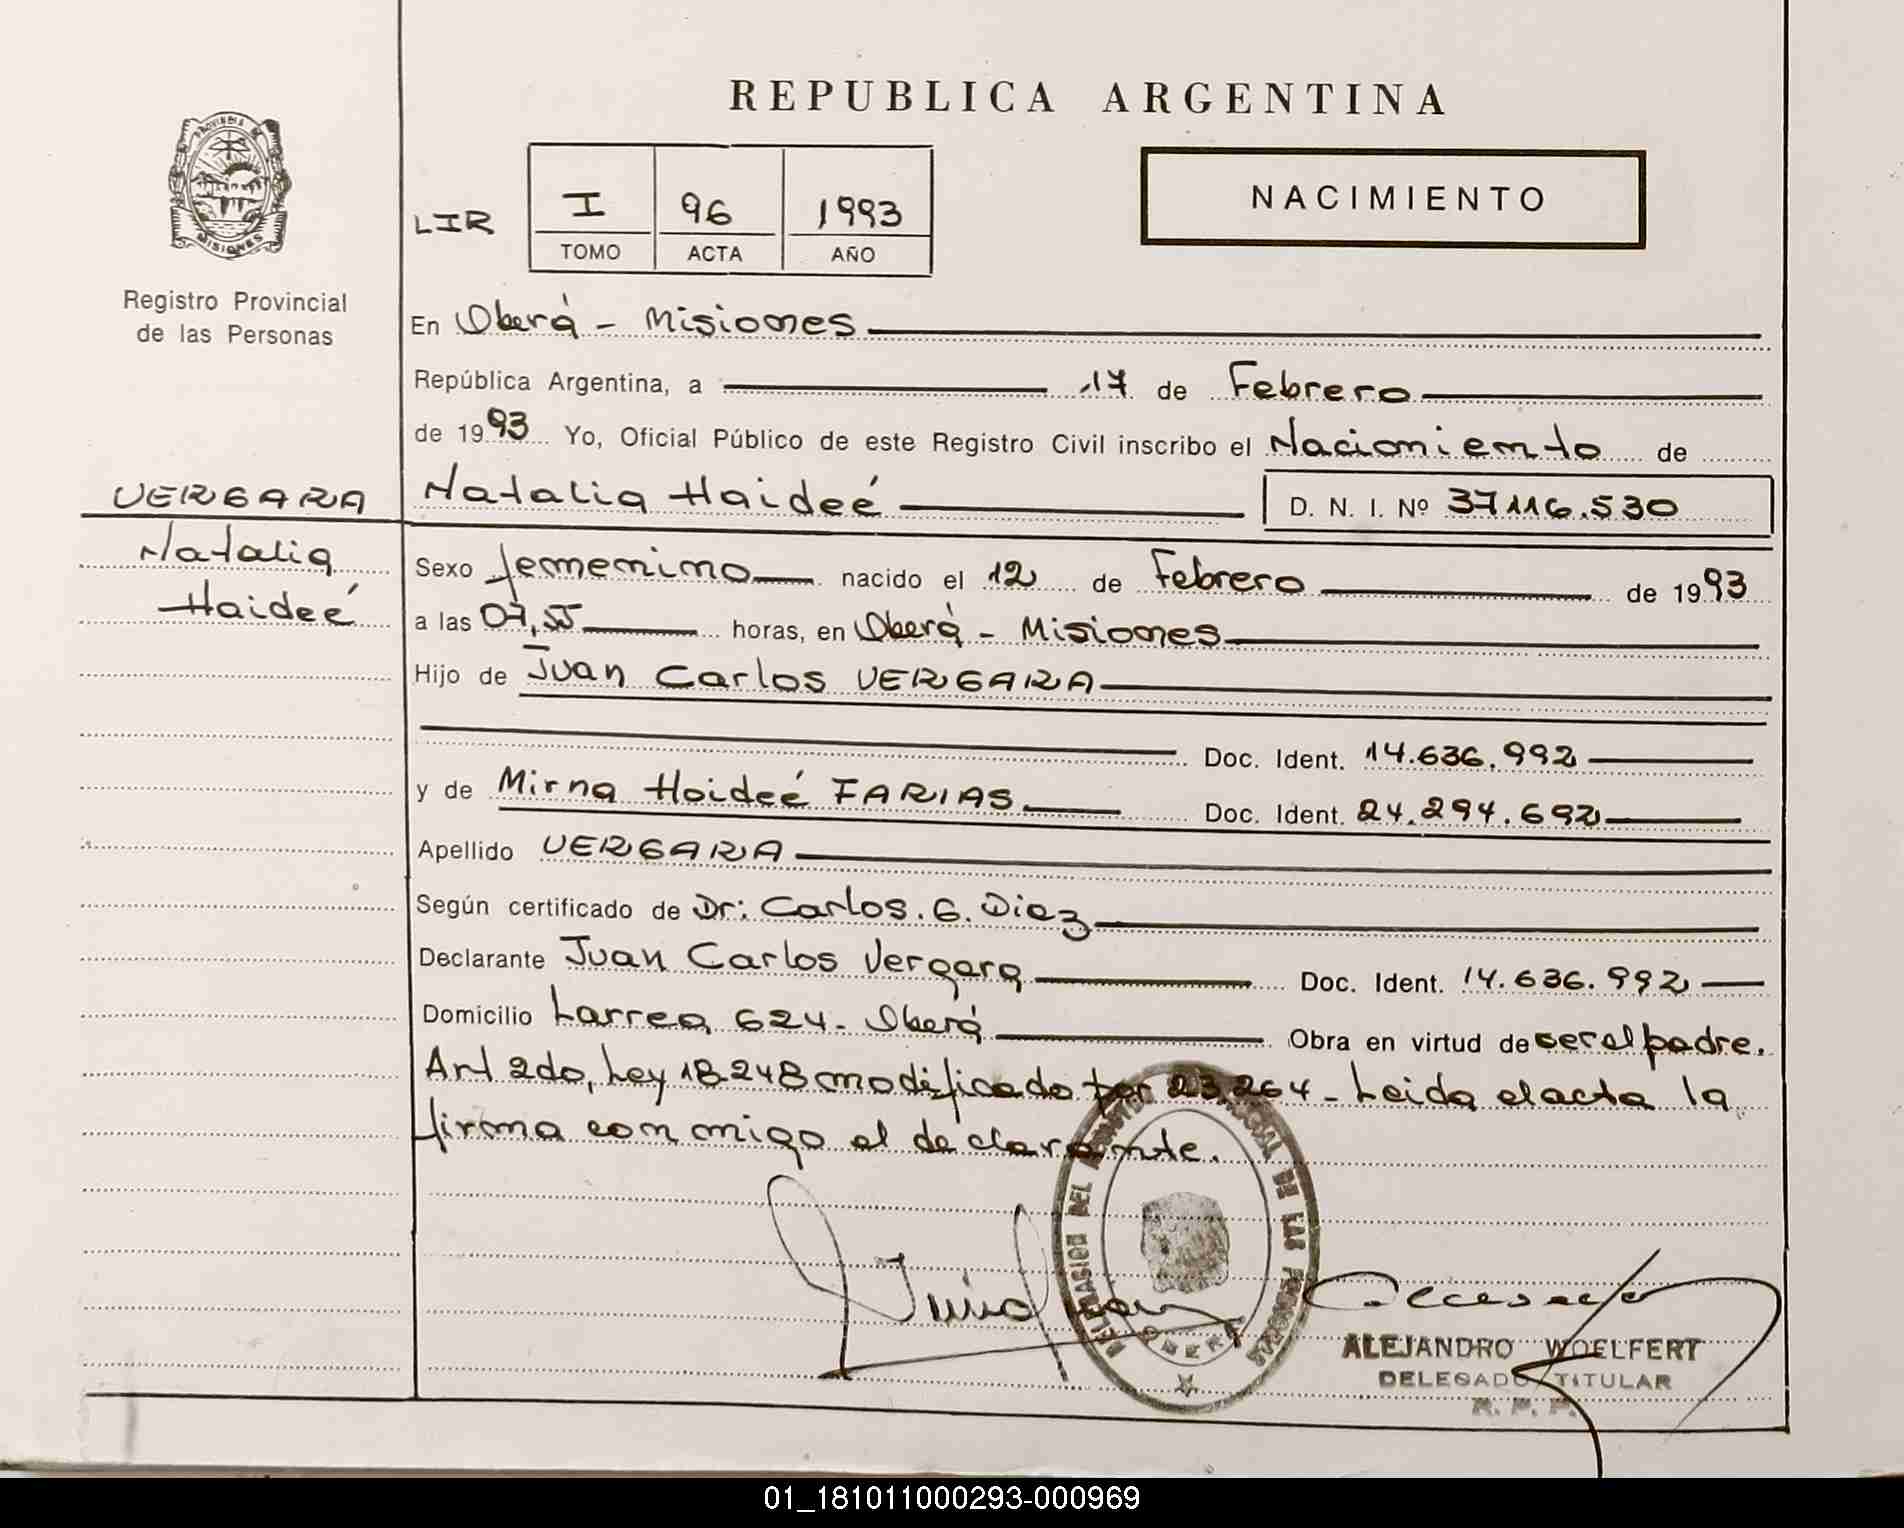 REPUBLICA ARGENTINA
PROVINCIA DE MISIONES
Registro Provincial
de las Personas
LIR I 96 1993
TOMO ACTA AÑO
NACIMIENTO
En Oberá - Misiones
República Argentina, a 17 de Febrero
de 1993 Yo, Oficial Público de este Registro Civil inscribo el Nacimiento de
VERGARA
Natalia
Haideé
Natalia Haideé D. N. I. Nº 37.116.530
Sexo femenino nacido el 12 de Febrero de 1993
a las 07,55 horas, en Oberá - Misiones
Hijo de Juan Carlos VERGARA
Doc. Ident. 14.636.992
y de Mirna Haideé FARIAS Doc. Ident. 24.294.692
Apellido VERGARA
Según certificado de Dr: Carlos. G. Diez
Declarante Juan Carlos Vergara Doc. Ident. 14.636.992
Domicilio Larrea 624 - Oberá Obra en virtud de ser el padre.
Art 2do, Ley 18.248 modificado por 23.264 - Leida el acta la
firma conmigo el declarante.
DELEGACION DEL REGISTRO PROVINCIAL DE LAS PERSONAS
OBERA
ALEJANDRO WOELFERT
DELEGADO TITULAR
R. P. P.
01_181011000293-000969